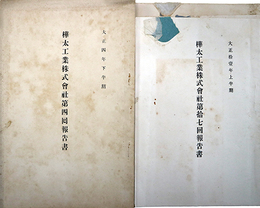 大正四年下半期
樺太工業株式會社第四囘報告書
大正拾壹年上半期
樺太工業株式會社第拾七囘報告書